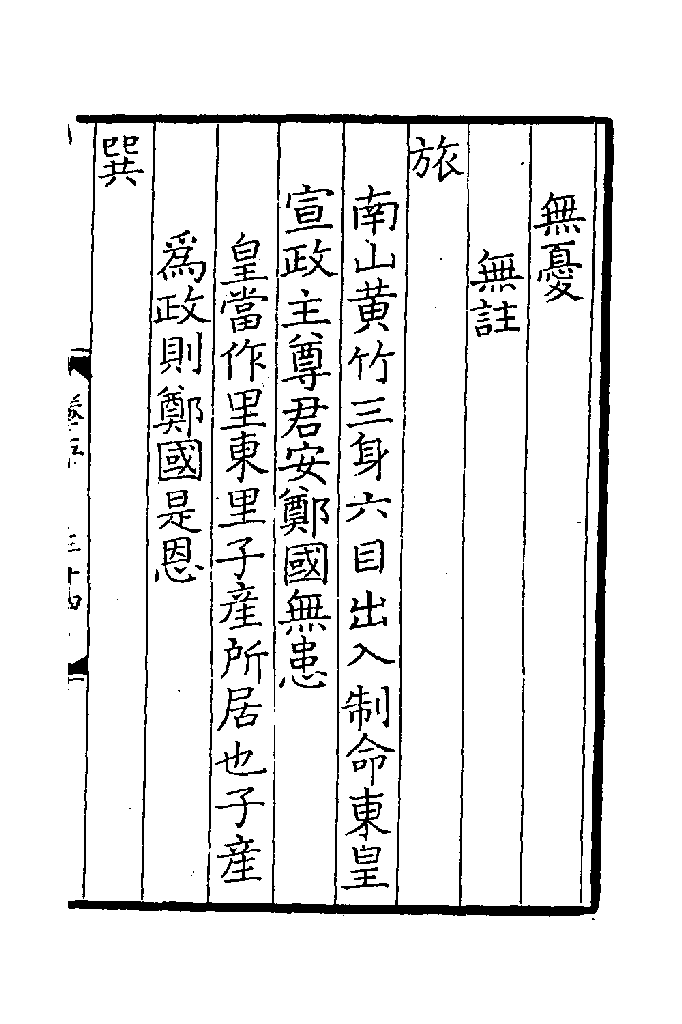 無憂
無註
旅
南山黄竹三身六目出入制命東皇
宣政主尊君安鄭國無患
皇當作里東里子産所居也子産
爲政則鄭國是恩
巽
三十四